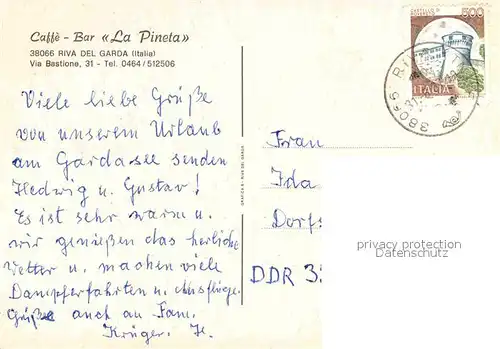 Caffè - Bar «La Pineta»
38066 RIVA DEL GARDA (Italia)
Via Bastione, 31 - Tel. 0464/512506
Viele liebe Grüße
von unserem Urlaub
am Gardasee senden
Hedwig u. Gustav!
Es ist sehr warm u.
wir genießen das herliche
Wetter u. machen viele
Dampferfahrten u. Ausflüge.
Grüße auch an Fam.
Krüger. H.
GRAFICA 5 - RIVA DEL GARDA
500
ITALIA
38066
Frau
Ida
Dorfs
DDR 3
privacy protection
Datenschutz